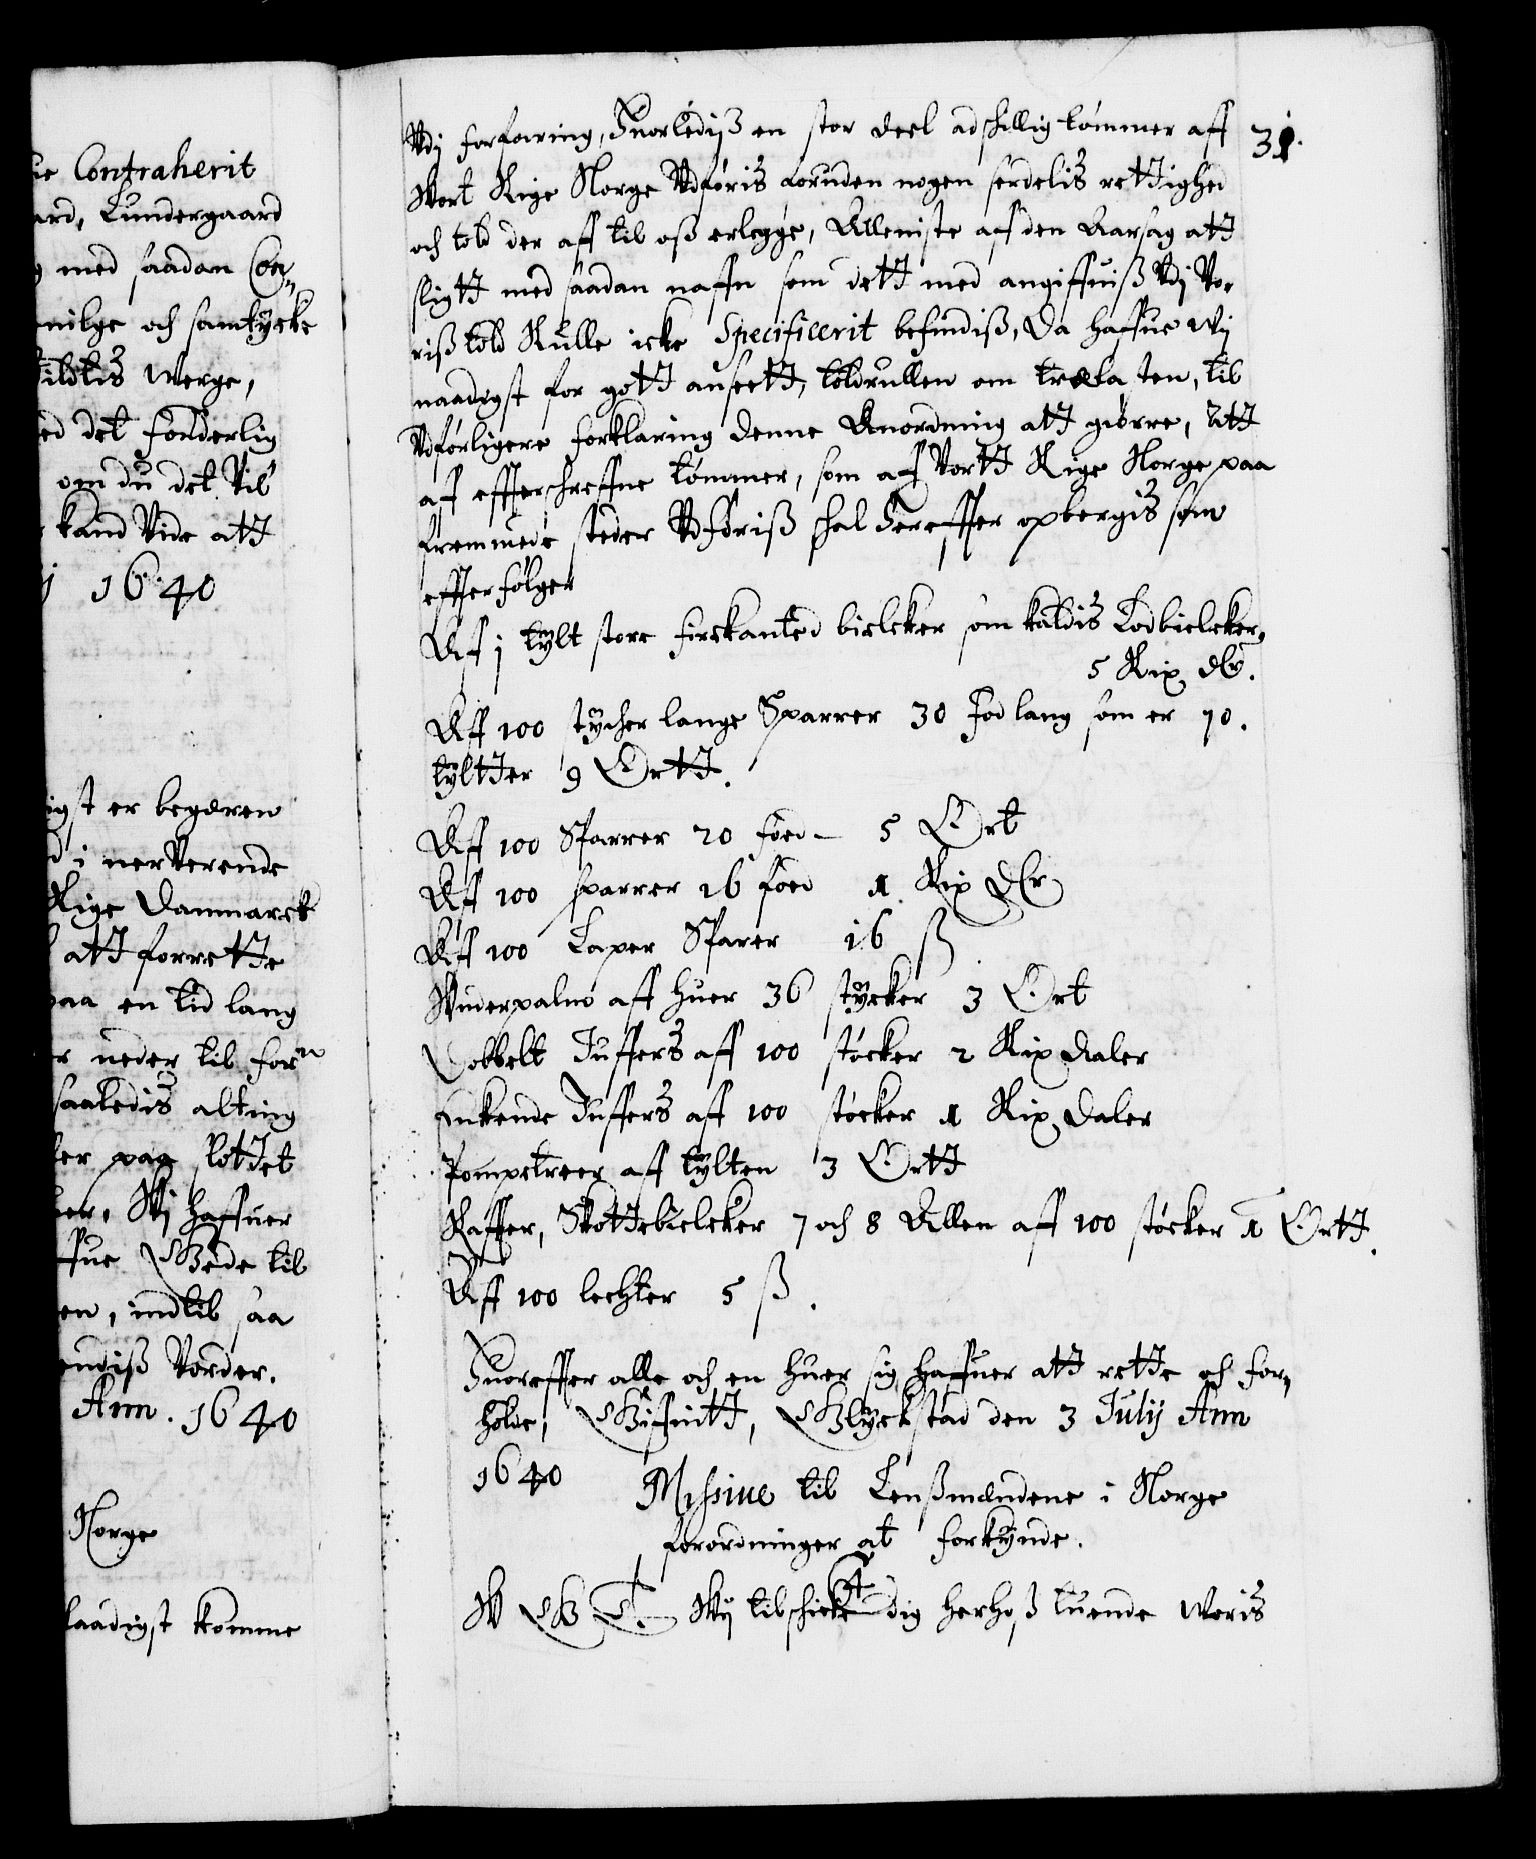 ue Contraherit
ard, Lundergaard
g med saadan Con„
nilge och samtycke
fildtis werge,
ed det sønderlig
om du det Vil
kand Vide att
j 1640
igst er begæren
d i nerVerende
Rige Danmarck
att forrette
paa en tid lang
r neder til forn
saaledis alting
ler paa Slottet
er, Wj haffuer
ffue GGiede til
en, indtil saa
endiß Vorder.
Ann. 1640
Norge
laadigst komme
31.
Vdj forfaring, Huorlediß en stor deel adskillig tømmer aff
Wort Rige Norge Vdføris foruden nogen serdelis rettighed
och told der aff til oß erlegge, Alleniste aff den Aarsag att
sligtt med saadan naffn som dett med angiffuiß Vdj Vo„
riß told Rulle icke Specificerit befindiß, Da haffue Wij
naadigst for gott anseett, toldrullen om trælasten, til
Vdførligere forklaring denne Anordning att giørre, Att
aff effterschreffne tømmer, som aff Vortt Rige Norge paa
fremmede steder Vdføriß skal herefter opbergis som
effterfølger
Aff j tylt store firekanted bielcker som kaldis Lodbielcker,
5 Rix dlr.
Aff 100 stycher lange Sparrer 30 fod lang som er 10.
tyltter 9 Ortt.
Aff 100 Sparrer 20 foed - 5 Ort
Aff 100 sparrer 16 foed 1 Rix Dlr
Aff 100 Laper Sparer 16 ß
Winderpalm aff huer 36 stycker 3 Ort
Dobbelt Juffers aff 100 støcker 2 Rix Daler
Enkende Juffers aff 100 støcker 1 Rix, Daler
Pompetreer aff tylten 3 Ortt
Raffter, Skottebielcker 7 och 8 Allen aff 100 støcker 1 Ortt.
Aff 100 lechter 5 ß.
Huoreffter alle och en huer sig haffuer att rette och for„
holde, Giffuitt, Glyckstad den 3 Julij Ann
1640
Missiue til Lenßmændene i Norge
forordninger at forkynde.
W G T Wij tilschicke dig herhoß tuende Woris